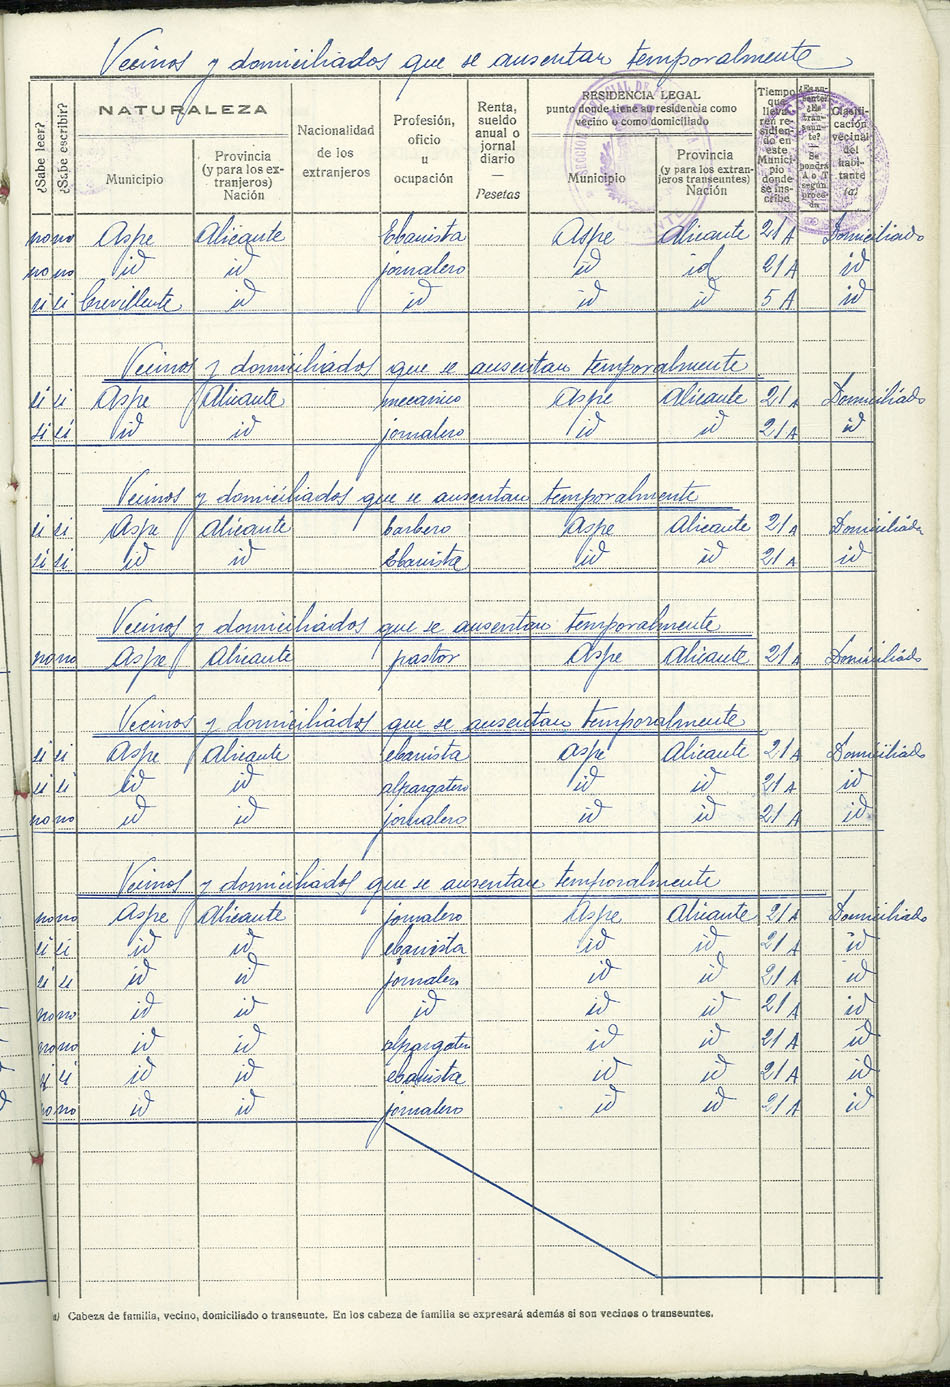 Vecinos y domiciliados que se ausentan temporalmente
¿Sabe leer?
¿Sabe escribir?
NATURALEZA
Municipio
Provincia
(y para los ex-
tranjeros)
Nación
Nacionalidad
de los
extranjeros
Profesión,
oficio
u
ocupación
Renta,
sueldo
anual o
jornal
diario
—
Pesetas
RESIDENCIA LEGAL
punto donde tiene su residencia como
vecino o como domiciliado
Municipio
Provincia
(y para los extran-
jeros transeuntes)
Nación
Tiempo
que
lleva
ren re-
sidien-
do en
este
Munici-
pio
donde
se ins-
cribe
Clasifi-
cación
vecinal
del
habi-
tante
(a)
no no Aspe Alicante Ebanista Aspe Alicante 21 A Domiciliado
no no id id jornalero id id 21 A id
si si Crevillente id id id id 5 A id
Vecinos y domiciliados que se ausentan temporalmente
si si Aspe Alicante mecanico Aspe Alicante 21 A Domiciliado
si si id id jornalero id id 21 A id
Vecinos y domiciliados que se ausentan temporalmente
si si Aspe Alicante barbero Aspe Alicante 21 A Domiciliado
si si id id Ebanista id id 21 A id
Vecinos y domiciliados que se ausentan temporalmente
no no Aspe Alicante pastor Aspe Alicante 21 A Domiciliado
Vecinos y domiciliados que se ausentan temporalmente
si si Aspe Alicante ebanista Aspe Alicante 21 A Domiciliado
si si id id alpargatero id id 21 A id
no no id id jornalero id id 21 A id
Vecinos y domiciliados que se ausentan temporalmente
no no Aspe Alicante jornalero Aspe Alicante 21 A Domiciliado
si si id id ebanista id id 21 A id
si si id id jornalero id id 21 A id
no no id id id id id 21 A id
no no id id alpargatero id id 21 A id
si si id id ebanista id id 21 A id
no no id id jornalero id id 21 A id
(a) Cabeza de familia, vecino, domiciliado o transeunte. En los cabeza de familia se expresará además si son vecinos o transeuntes.